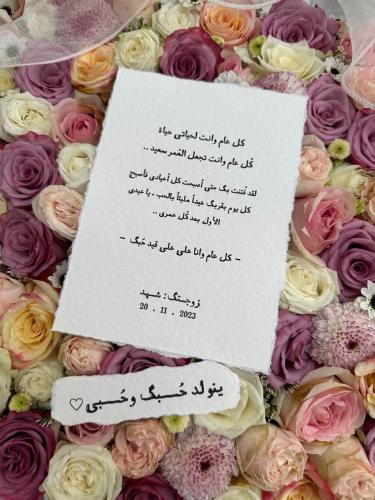 كل عام وانت لحياتي حياة
كُل عام وانت تجعل العُمر سعيد ..
لقد فُتنت بگ حتى أصبحت كل أعيادي فأصبح
كل يوم بقربگ عيداً مليئاً بالحب ، يا عيدي
الأول بعد كُل عمري ..
- كل عام وانا على على قيد حُبگ -
زوجتگ : شهد
20 . 11 . 2023
ينولد حُسبگ وحُسبي ♡